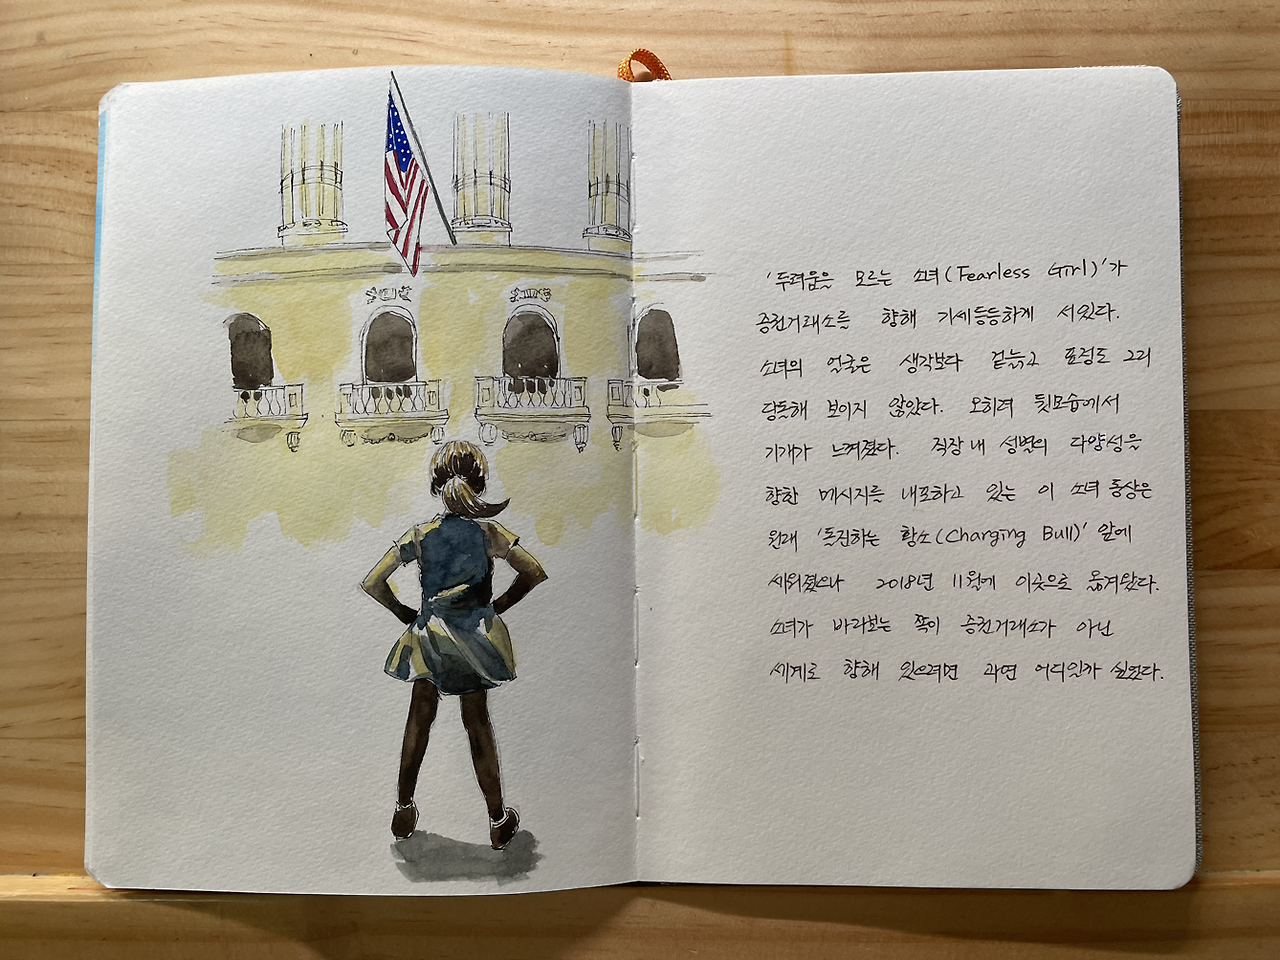 '두려움을 모르는 소녀(Fearless Girl)'가
증권거래소를 향해 기세등등하게 서있다.
소녀의 얼굴은 생각보다 겉늙고 표정도 그리
당돌해 보이지 않았다. 오히려 뒷모습에서
기개가 느껴졌다. 직장 내 성별의 다양성을
향한 메시지를 내포하고 있는 이 소녀 동상은
원래 '돌진하는 황소(Charging Bull)' 앞에
세워졌으나 2018년 11월에 이곳으로 옮겨왔다.
소녀가 바라보는 쪽이 증권거래소가 아닌
세계로 향해 있으려면 과연 어디일까 싶었다.